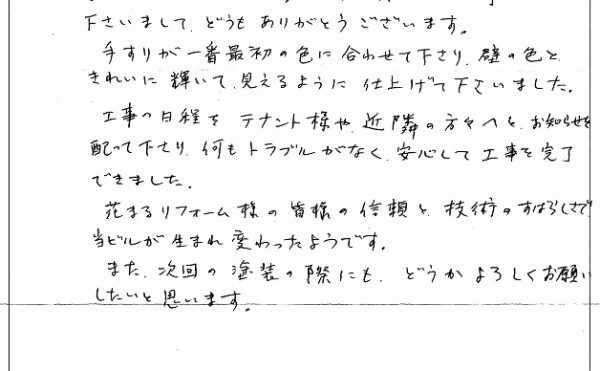 下さいまして、どうもありがとうございます。
手すりが一番最初の色に合わせて下さり、壁の色と
きれいに輝いて見えるように仕上げて下さいました。
工事の日程をテナント様や近隣の方々へと、お知らせを
配って下さり、何もトラブルがなく、安心して工事を完了
できました。
花まるリフォーム様の皆様の信頼と、技術のすばらしさで
当ビルが生まれ変わったようです。
また、次回の塗装の際にも、どうかよろしくお願い
したいと思います。